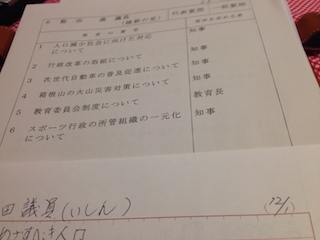 議員
代表質問
一般質問
質問の要旨
1 人口減少社会に向けた対応
について
知事
2 行政改革の取組について
知事
3 次世代自動車の普及促進について
知事
4 箱根山の火山災害対策について
知事
5 教育委員会制度について
教育長
6 スポーツ行政の所管組織の一元化
について
知事
田議員(いしん)
(12/1)